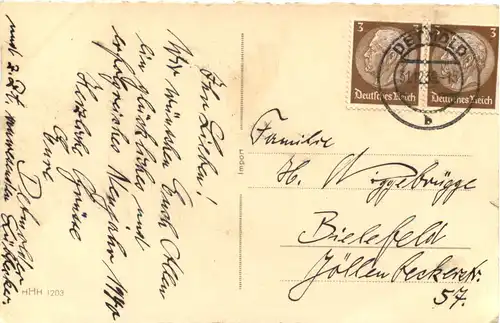 Ihr Lieben!
Wir wünschen Euch Allen
ein glückliches und
erfolgreiches Neujahr 1940
Herzliche Grüsse
Eure
Detmolder
und z. Zt.
HHH 1203
Import
3
3
Deutsches Reich
Deutsches Reich
DETMOLD
b
Familie
H. Wiggebrügge
Bielefeld
Jöllenbeckerstr.
57.